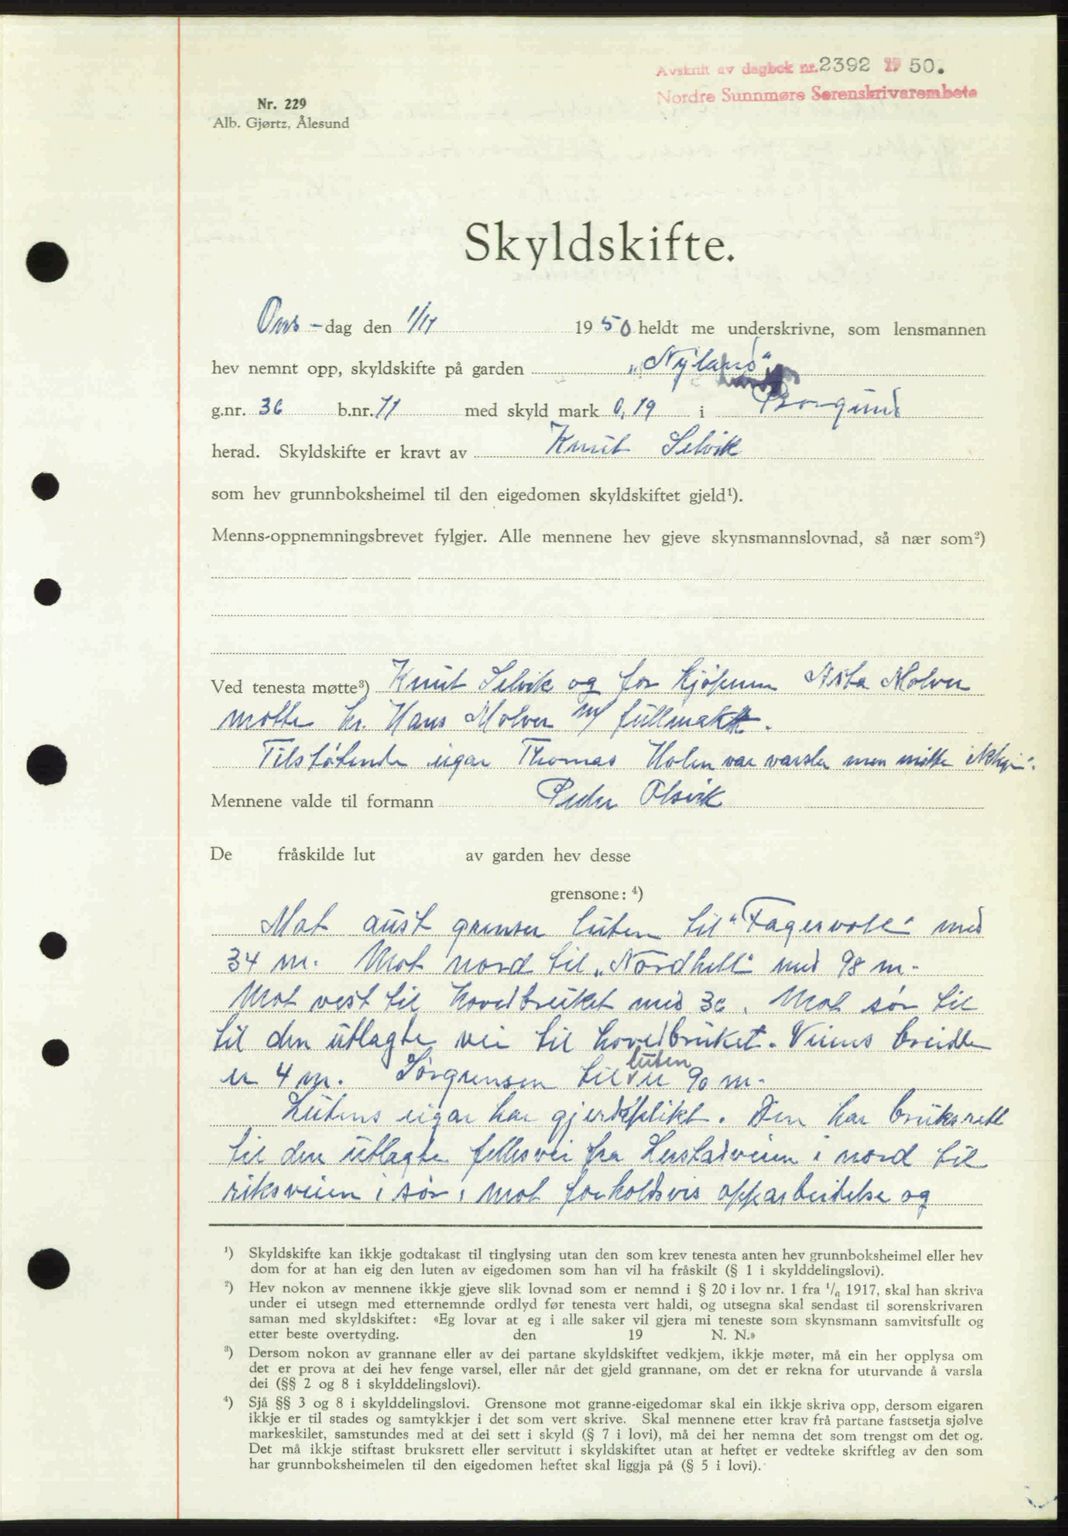 Avskrift av dagbok nr. 2392 19 50.
Nordre Sunnmøre Sorenskrivarembete
Nr. 229
Alb. Gjørtz, Ålesund
Skyldskifte.
Ons-dag den 1/11 1950 heldt me underskrivne, som lensmannen
hev nemnt opp, skyldskifte på garden „Nyland“
g.nr. 36 b.nr. 71 med skyld mark 0,19 i Borgund
herad. Skyldskifte er kravt av Knut Selvik
som hev grunnboksheimel til den eigedomen skyldskiftet gjeld¹).
Menns-oppnemningsbrevet fylgjer. Alle mennene hev gjeve skynsmannslovnad, så nær som²)
Ved tenesta møtte³) Knut Selvik og for kjøperen Asta Molver
møtte hr. Hans Molver m/ fullmakt.
Tilstøtende eigar Thomas Holen var varsla men møtte ikkje.
Mennene valde til formann Peder Olsvik
De fråskilde lut av garden hev desse
grensone: ⁴)
Mot aust grenser luten til "Fagervoll" med
34 m. Mot nord til „Nordhell“ med 98 m.
Mot vest til hovedbruket med 36. Mot sør til
til den utlagte vei til hovedbruket. Veiens breidde
er 4 m. Sørgrensen til luten er 90 m.
Lutens eigar har gjerdeplikt. Den har bruksrett
til den utlagte fellesvei fra veien i nord til
riksveien i sør, mot forholdsvis opparbeidelse og
¹) Skyldskifte kan ikkje godtakast til tinglysing utan den som krev tenesta anten hev grunnboksheimel eller hev
dom for at han eig den luten av eigedomen som han vil ha fråskilt (§ 1 i skylddelingslovi).
²) Hev nokon av mennene ikkje gjeve slik lovnad som er nemnd i § 20 i lov nr. 1 fra ¹/₈ 1917, skal han skriva
under ei utsegn med etternemnde ordlyd før tenesta vert haldi, og utsegna skal sendast til sorenskrivaren
saman med skyldskiftet: «Eg lovar at eg i alle saker vil gjera mi teneste som skynsmann samvitsfullt og
etter beste overtyding. den 19 N. N.»
³) Dersom nokon av grannane eller av dei partane skyldskiftet vedkjem, ikkje møter, må ein her opplysa om
det er prova at dei hev fenge varsel, eller når det gjeld grannane, om det er rekna for uturvande å varsla
dei (§§ 2 og 8 i skylddelingslovi).
⁴) Sjå §§ 3 og 8 i skylddelingslovi. Grensone mot granne-eigedomar skal ein ikkje skriva opp, dersom eigaren
ikkje er til stades og samtykkjer i det som vert skrive. Skal mennene etter krav frå partane fastsetja sjølve
markeskilet, samstundes med at dei sett i skyld (§ 7 i lovi), må dei her nemna det som trengst om det og.
Det må ikkje stiftast bruksrett eller servitutt i skyldskiftet utan at heftet er vedteke skriftleg av den som
har grunnboksheimelen til den eigedomen heftet skal liggja på (§ 5 i lovi).